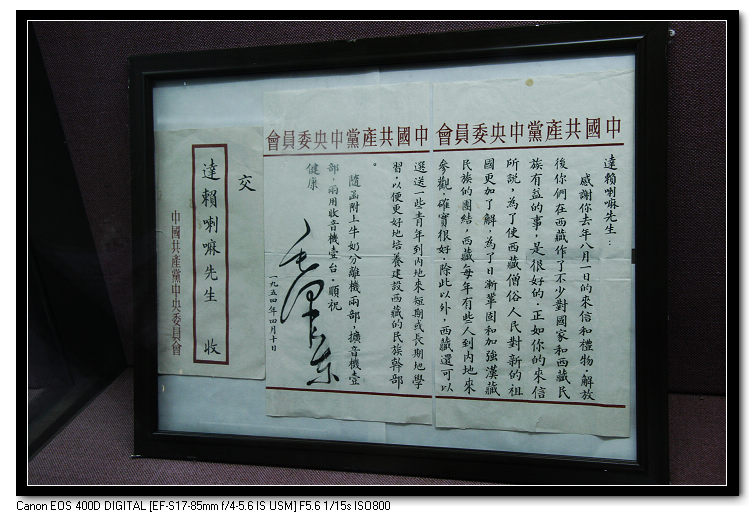 中國共產黨中央委員會
達賴喇嘛先生：
感謝你去年八月一日的來信和禮物。解放
後你們在西藏作了不少對國家和西藏民
族有益的事，是很好的。正如你的來信
所說，為了使西藏僧俗人民對新的祖
國更加了解，為了日漸鞏固和加強漢藏
民族的團結，西藏每年有些人到內地來
參觀，確實很好。除此以外，西藏還可以
中國共產黨中央委員會
選送一些青年到內地來短期或長期地學
習，以便更好地培養建設西藏的民族幹部
。
隨函附上牛奶分離機兩部，擴音機壹
部，兩用收音機壹台。順祝
健康
毛澤東
一九五四年四月十日
交
達賴喇嘛先生 收
中國共產黨中央委員會
Canon EOS 400D DIGITAL [EF-S17-85mm f/4-5.6 IS USM] F5.6 1/15s ISO800